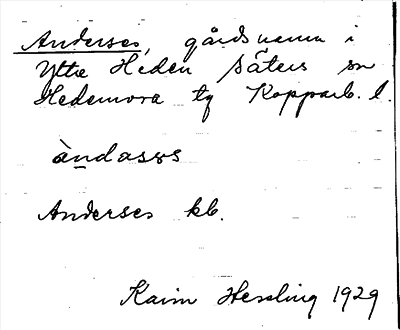 Anderses, gårdsnamn i
Yttre Heden Säters sn
Hedemora tg Kopparb. l.
àndasɞs
Anderses kb.
Karin Hessling 1929